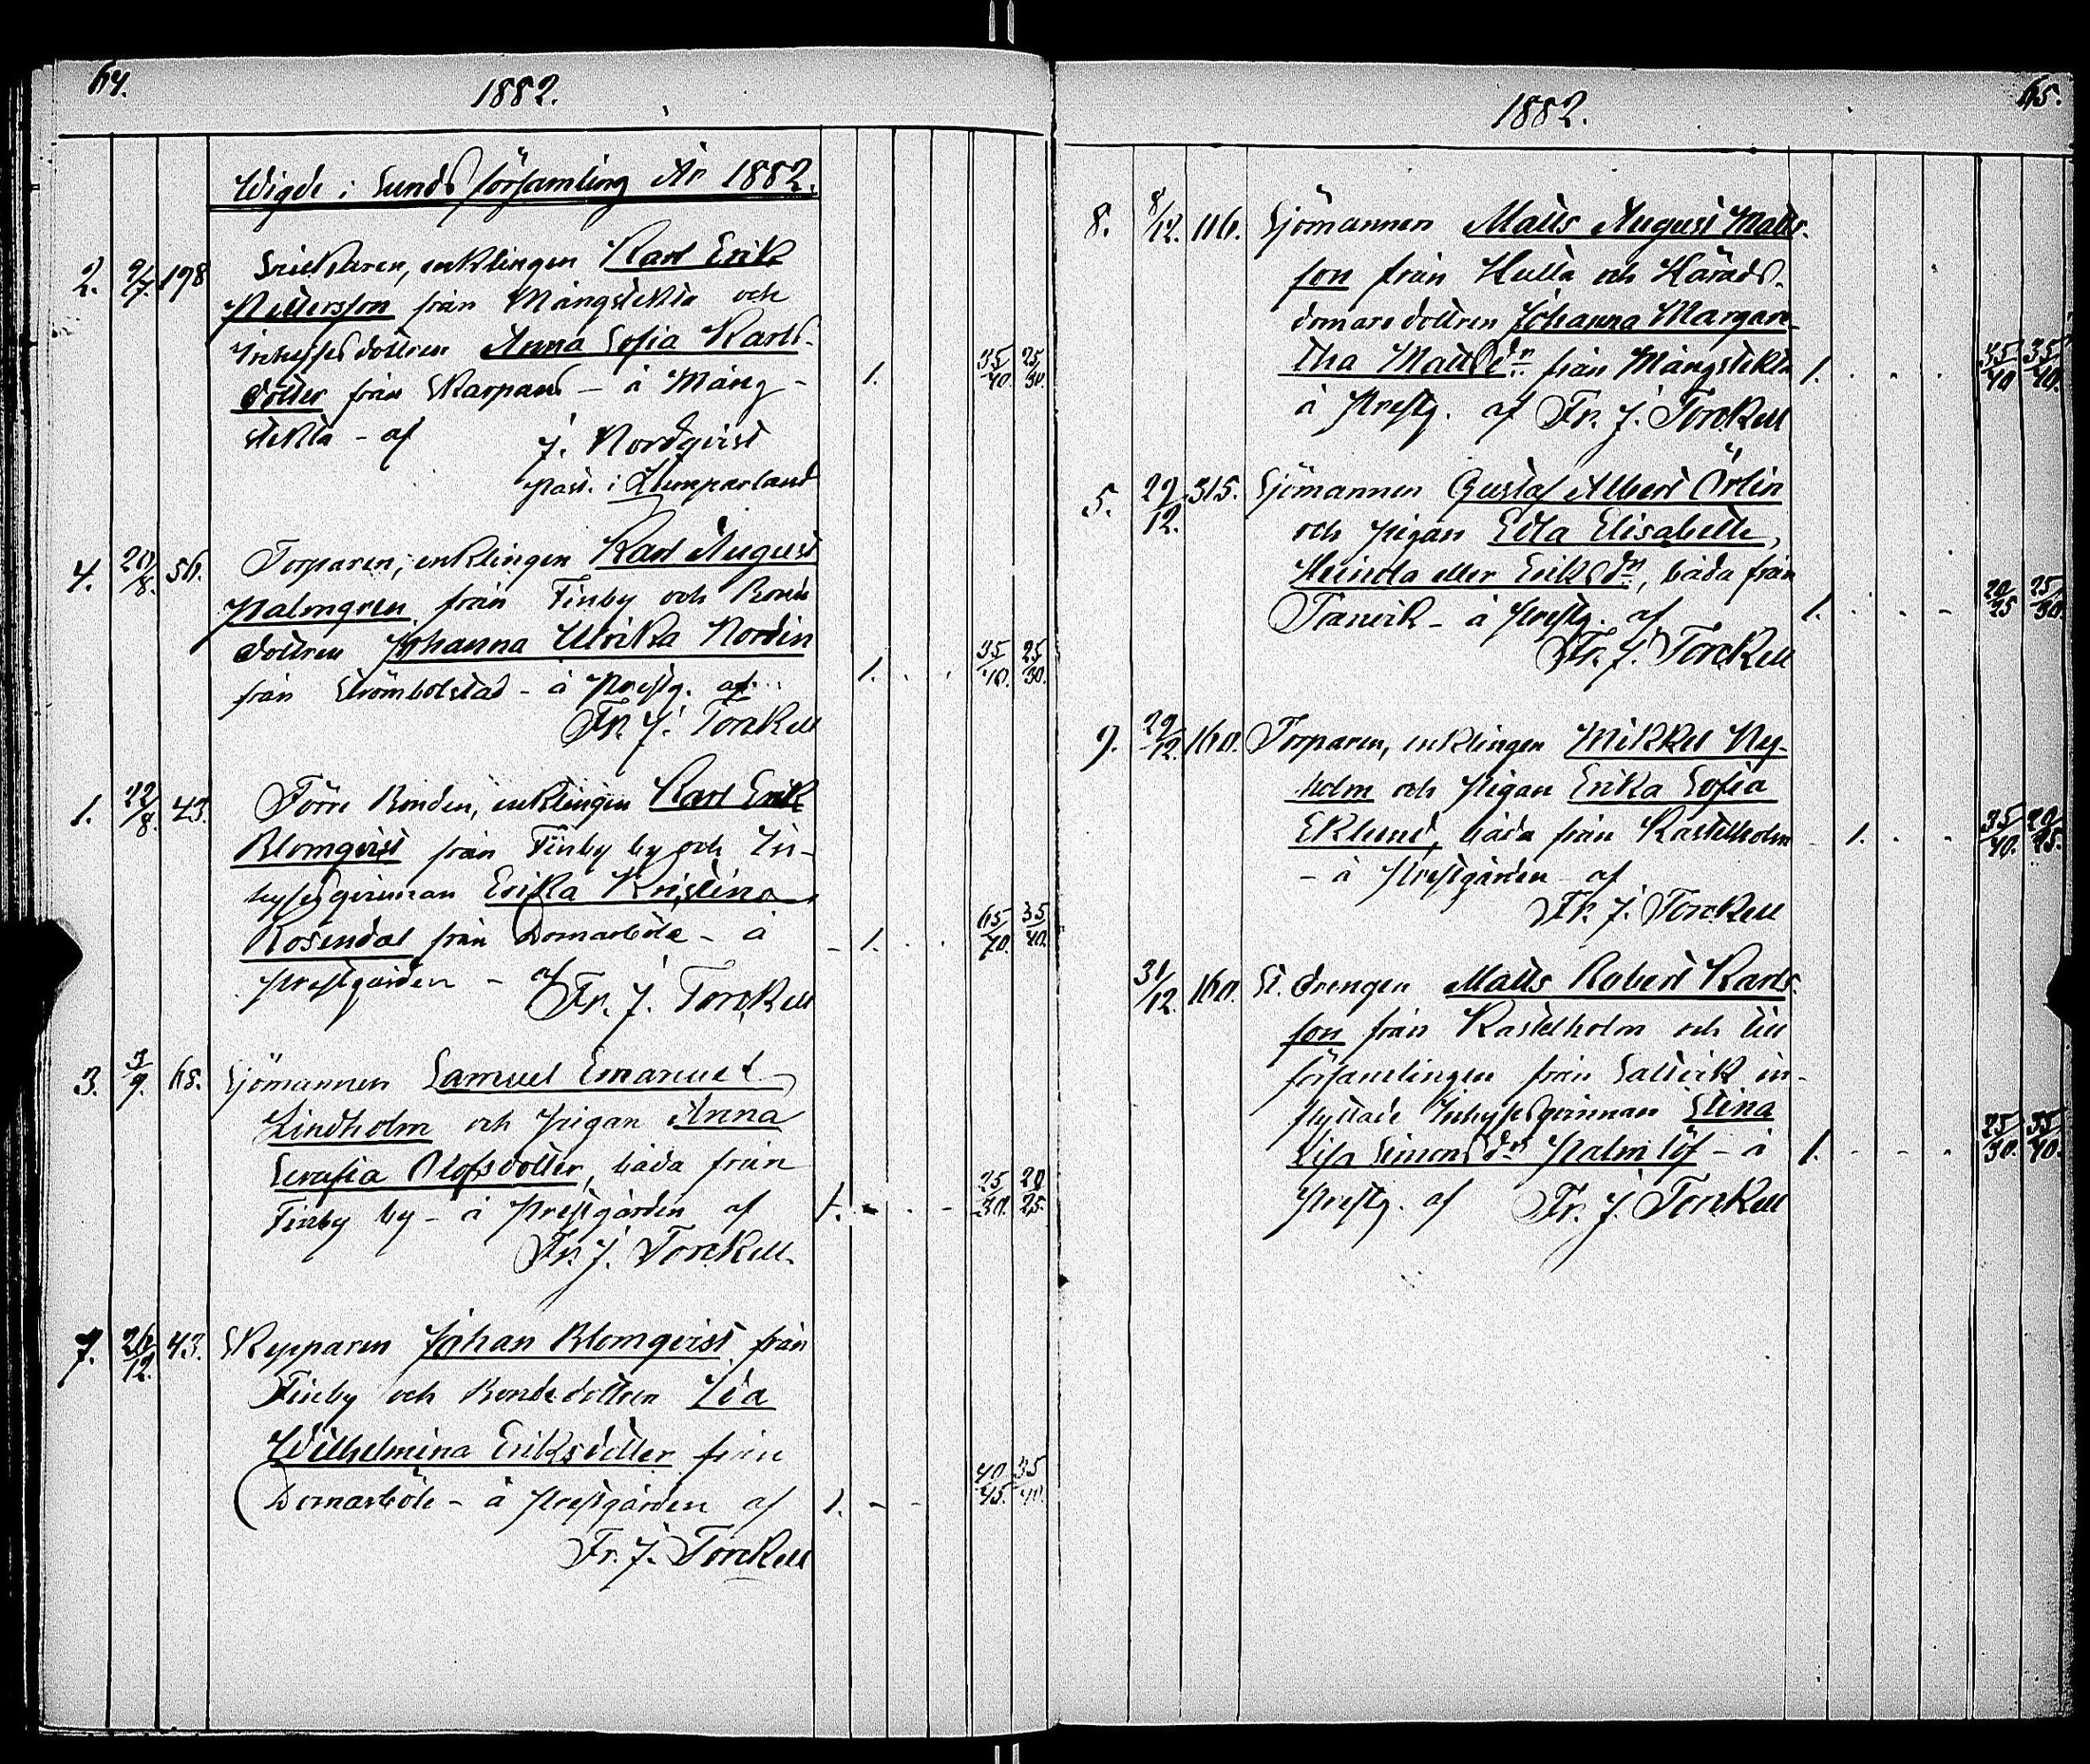 64.
1882.
Wigde i Sunds församling År 1882.
2. 9/7. 198 enklingen Karl Erik
Pettersson från Mångstekta och
Inhysesdottren Anna Sofia Karls-
dotter från Skarpans - å Mång-
stekta - af J. Nordqvist
1. 35/40. 25/30.
past. i Lumparland
4. 20/8. 56. Torparen, enklingen Karl August
Palmgren från Finby och Bonde
dottren Johanna Ulrika Nordin
från Strömbolstad - å Prestg. af
1. 35/40. 25/30.
Fr. J. Torckell
1. 22/8. 43. Förre Bonden, enklingen Karl Erik
Blomqvist från Finby by och In-
hysesqvinnan Erika Kristina
Rosendal från Domarböle - å
1. 65/70. 35/40.
Prestgården - af Fr. J. Torckell
3. 3/9. 65. Sjömannen Samuel Emanuel
Lindholm och Pigan Anna
Serafia Olofsdotter, båda från
Finby by - å Prestgården af
1. 25/30. 20/25.
Fr. J. Torckell.
7. 26/12. 43. Skepparen Johan Blomqvist från
Finby och Bondedottren Ida
Wilhelmina Eriksdotter från
Domarböle - å Prestgården af
1. 40/45. 35/40.
Fr. J. Torckell
65.
1882.
8. 8/12. 116. Sjömannen Matts August Matts-
son från Hulta och Härads-
domaredottren Johanna Margare-
tha Mattsdr. från Mångstekta
1. 35/40 35/40.
å Prestg. af Fr. J. Torckell
5. 29/12. 315. Sjömannen Gustaf Albert Örlin
och Pigan Edla Elisabeth,
Heinola eller Eriksdr., båda från
Tranvik - å Prestg. af
1. 20/25 25/30.
Fr. J. Torckell
9. 29/12. 160. Torparen, enklingen Mikkel Ny-
holm och Pigan Erika Sofia
Eklund, båda från Kastelholm
1. 35/40. 20/25.
- å Prestgården af
Fr. J. Torckell
31/12. 160. St. drengen Matts Robert Karls-
son från Kastelholm och till
församlingen från Saltvik in-
flyttade Inhysesqvinnan Stina
Lisa Simonsdr. Palmlöf - å
1. 25/30. 35/40.
Prestg. af Fr. J. Torckell